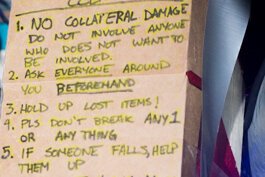 1. NO COLLATERAL DAMAGE
DO NOT INVOLVE ANYONE
WHO DOES NOT WANT TO
BE INVOLVED.
2. ASK EVERYONE AROUND
YOU BEFOREHAND
3. HOLD UP LOST ITEMS!
4. PLS DON'T BREAK ANY1
OR ANY THING
5. IF SOMEONE FALLS, HELP
THEM UP